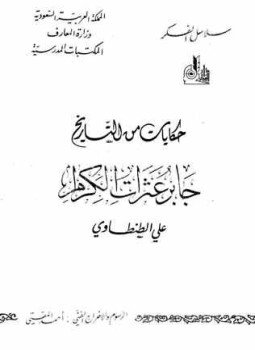 المملكة العربية السعودية
وزارة المعارف
المكتبات المدرسية
سلاسل الفكر
حكايات من التاريخ
جابر عثرات الكرام
علي الطنطاوي
الرسوم والإخراج الفني : أحمد